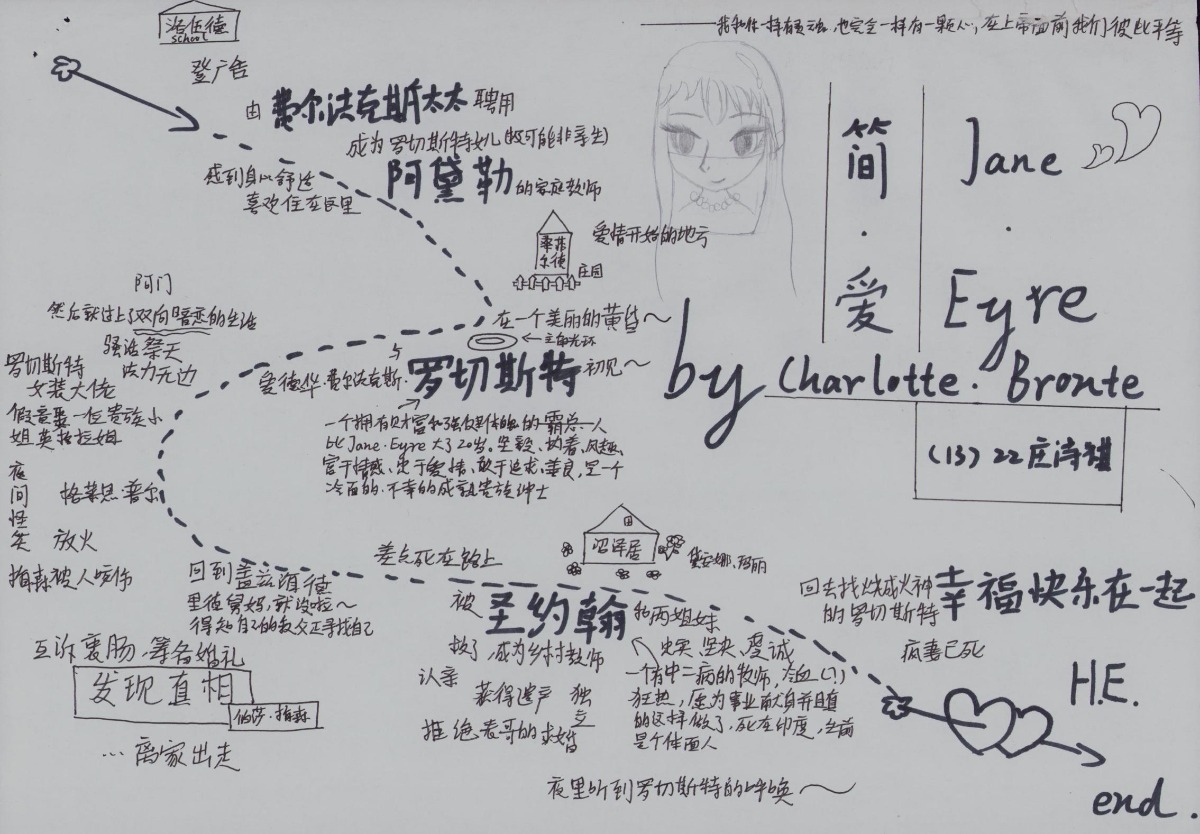 洛伍德
school
登广告
由费尔法克斯太太聘用
成为罗切斯特女儿(极可能非亲生)
阿黛勒的家庭教师
感到身心舒适
喜欢住在这里
——我和你一样有灵魂,也完全一样有一颗心,在上帝面前我们彼此平等
简·爱
Jane
·
Eyre
by Charlotte. Bronte
(13) 22 庄诗
爱情开始的地方
庄园
在一个美丽的黄昏~
←主角光环
与
爱德华·费尔法克斯·罗切斯特 初见~
一个拥有财富和强健体魄的霸总一人
比Jane·Eyre大了20岁。坚毅、执着、风趣、
富于情感、忠于爱情、敢于追求、善良,是一个
冷面的、不幸的成熟贵族绅士
阿门
然后就过上了双向暗恋的生活
骚话祭天
法力无边
罗切斯特
女装大佬
假意娶一位贵族小
姐英格拉姆
夜间怪笑
格莱思·普尔
放火
梅森被人咬伤
互诉衷肠,筹备婚礼
发现真相
伯莎·梅森
…离家出走
回到盖兹海德
里德舅妈,就没啦~
得知自己的叔父正寻找自己
差点死在路上
沼泽居
黛安娜、玛丽
被圣约翰和两姐妹
救了,成为乡村教师
认亲
获得遗产 独立
拒绝表哥的求婚
忠实、坚决、虔诚
一个有中二病的牧师,冷血(!)
狂热,愿为事业献身并且真
的这样做了,死在印度,生前
是个体面人
夜里听到罗切斯特的呼唤~
回去找烧成火神
的罗切斯特
幸福快乐在一起
疯妻已死
H.E.
end.